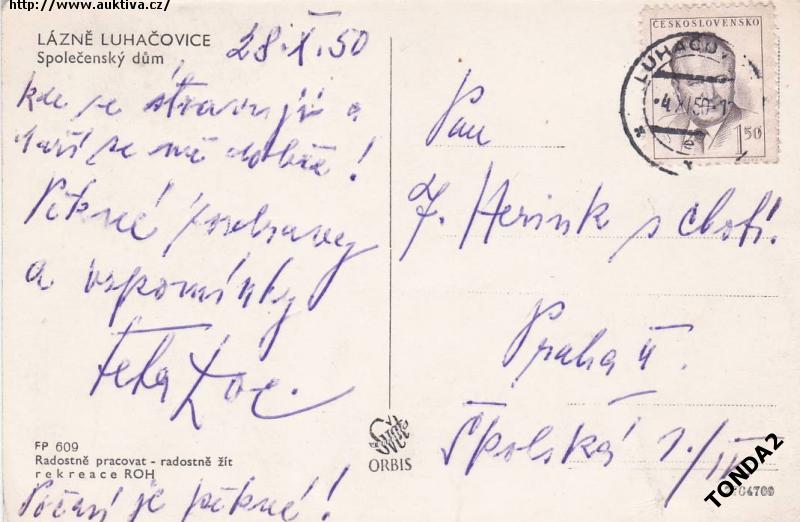 http://www.auktiva.cz/
LÁZNĚ LUHAČOVICE
Společenský dům,
28.X.50
kde se stravuji a
daří se mě dobře!
Pěkné pozdravy
a vzpomínky
Teta
FP 609
Radostně pracovat - radostně žít
rekreace ROH
Počasí je pěkné!
Svět
ORBIS
ČESKOSLOVENSKO
1.50
LUHAČOV
4.XI.50-12
Pan
J. Herink s chotí.
Praha II.
Školská 1./
TONDA2